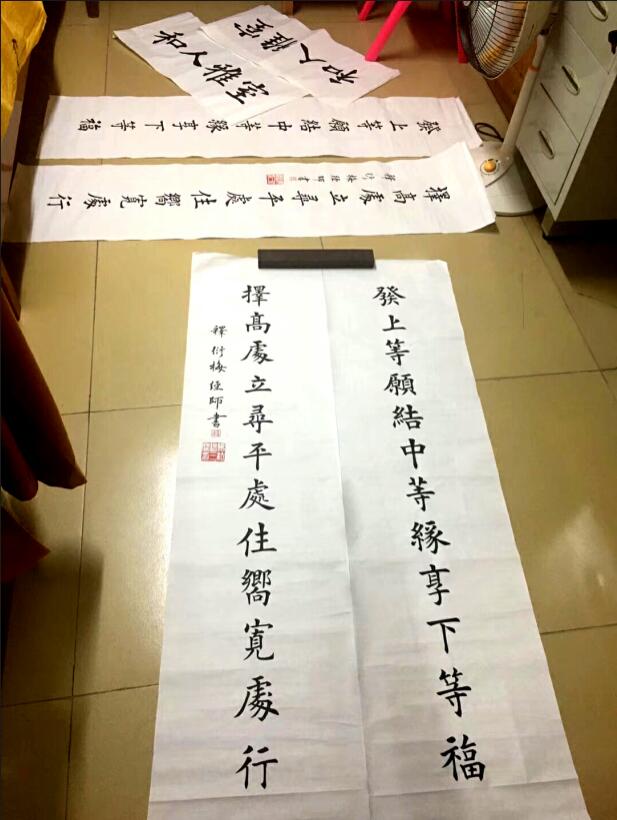 室雅人和
室雅人和
發上等願結中等緣享下等福
擇高處立尋平處住嚮寬處行
發上等願結中等緣享下等福
擇高處立尋平處住嚮寬處行
釋衍梅經師書